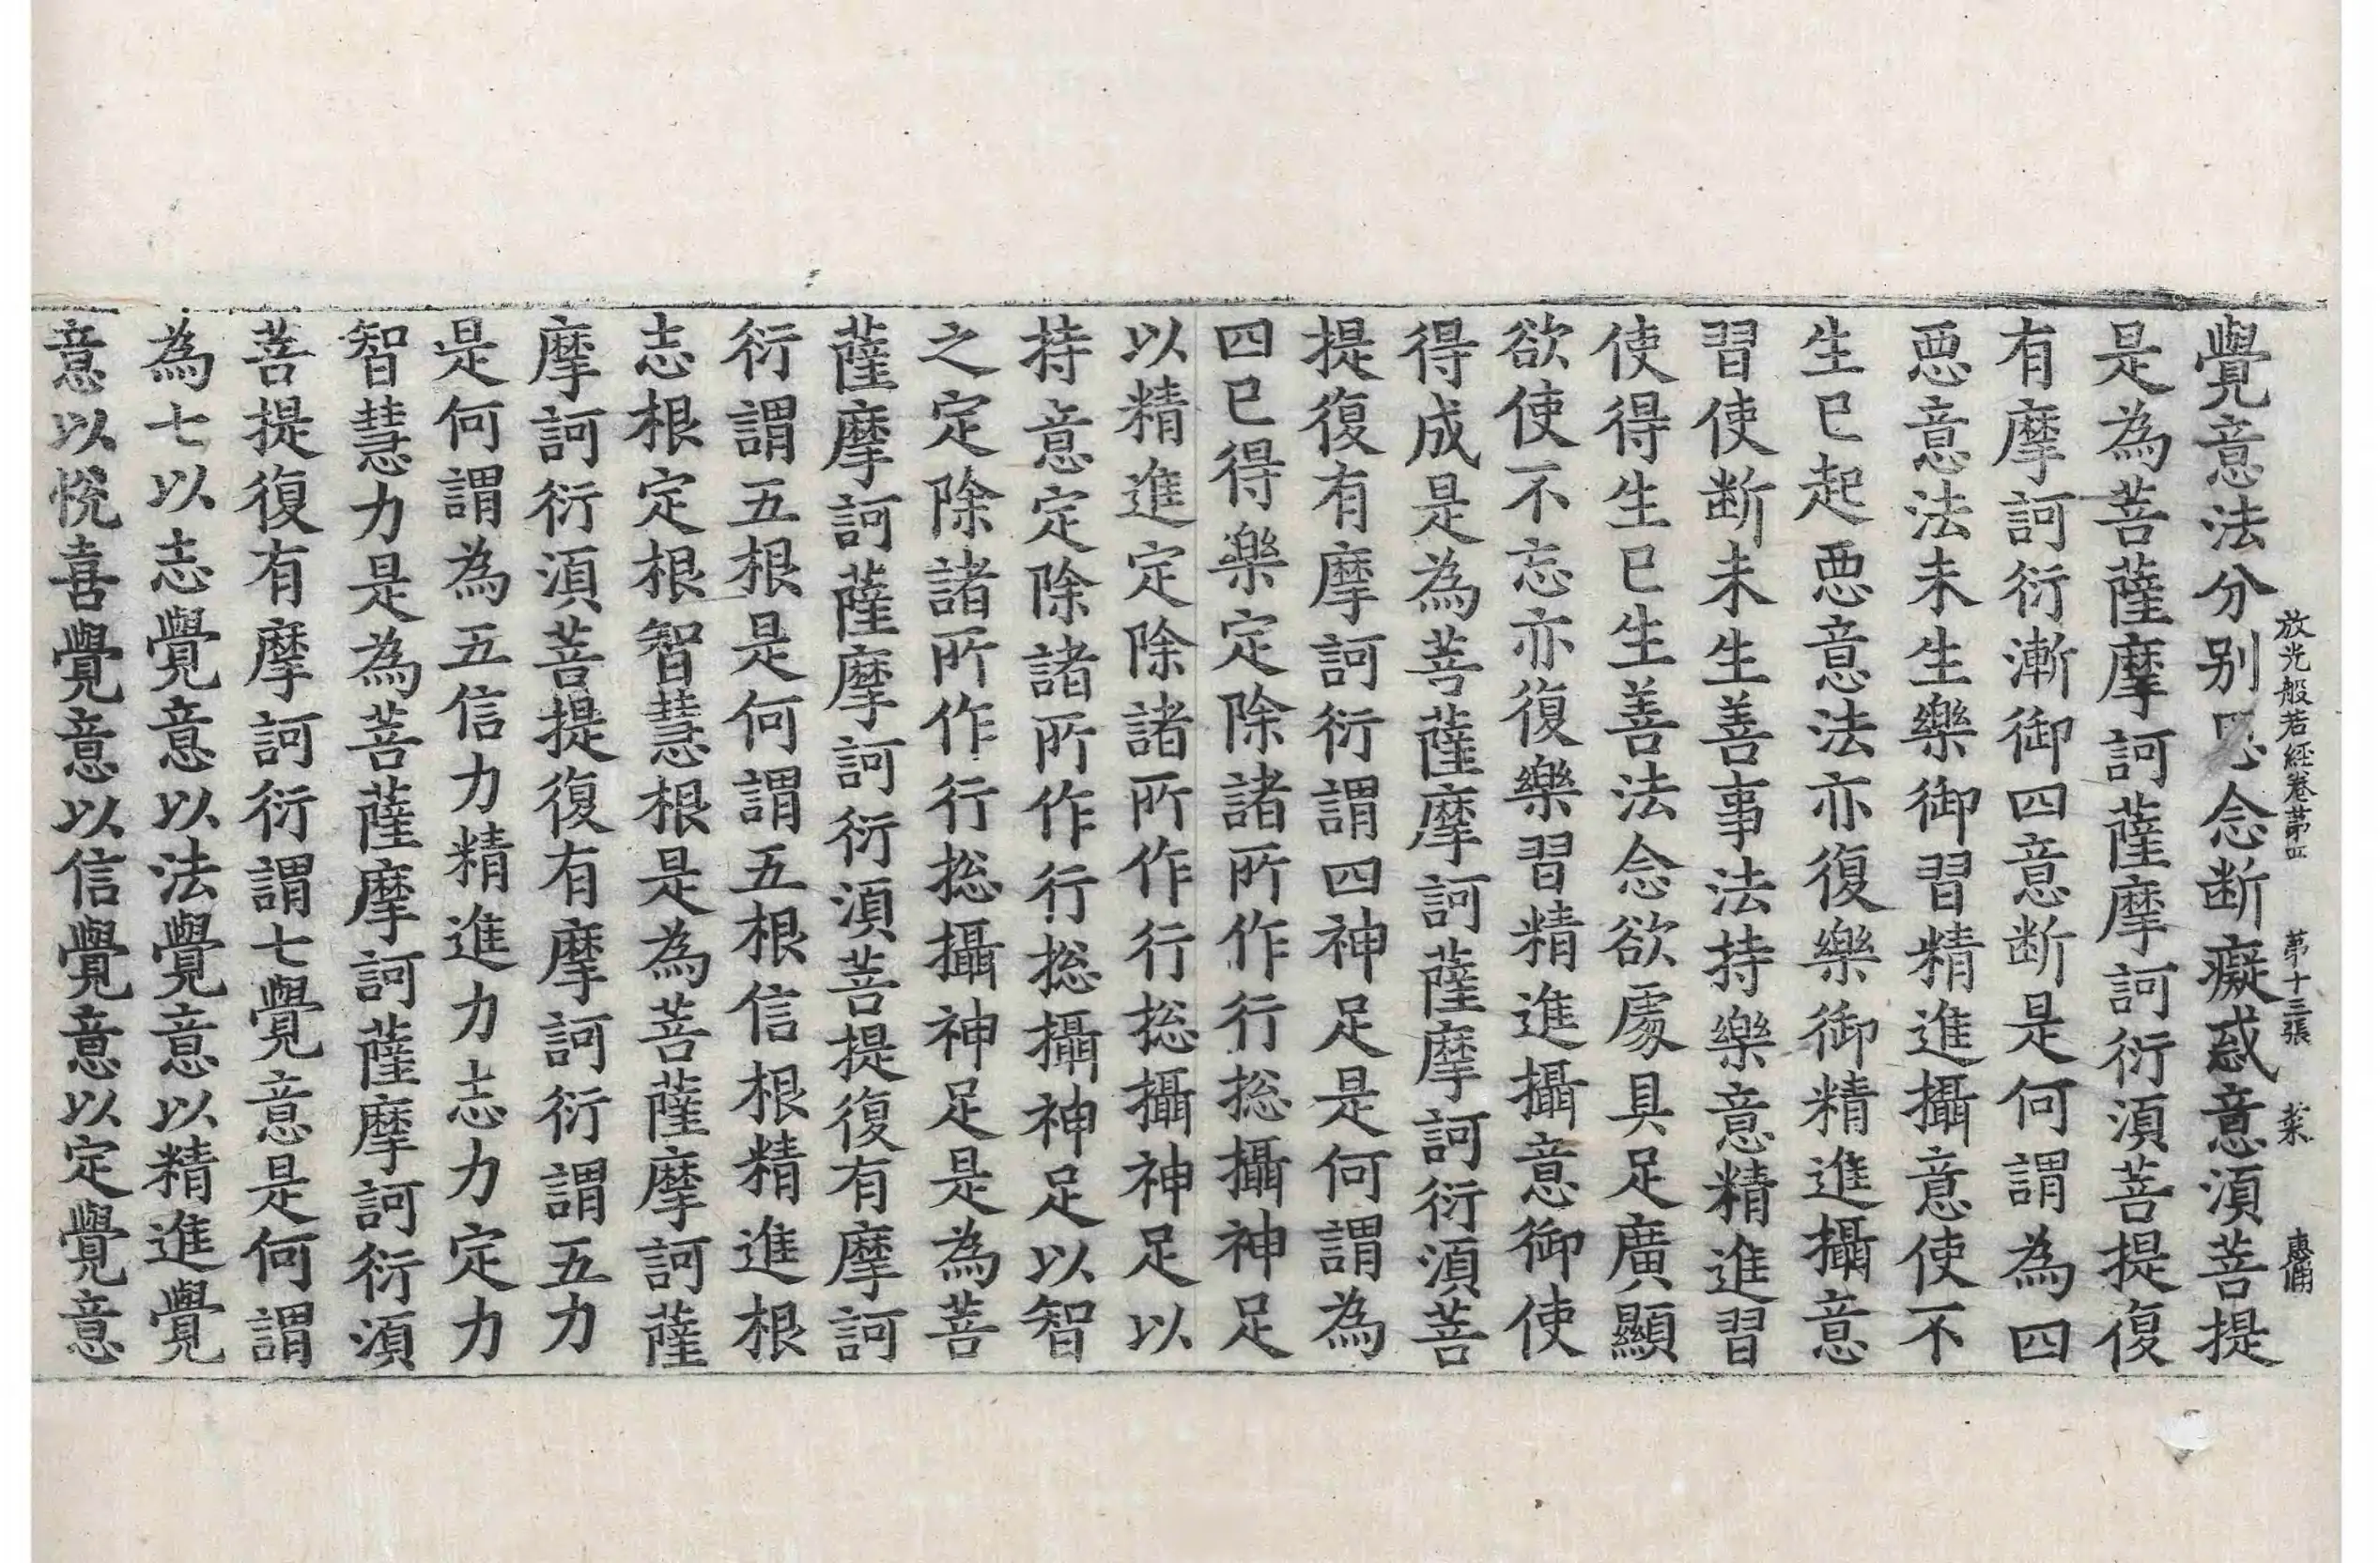 放光般若經卷第四　第十三張　菜　惠備
覺意法分別念断癡惑意湏菩提
是為菩薩摩訶薩摩訶衍湏菩提復
有摩訶衍漸御四意断是何謂為四
惡意法未生樂御習精進攝意使不
生已起惡意法亦復樂御精進攝意
習使断未生善事法持樂意精進習
使得生已生善法念欲處具足廣顯
欲使不忘亦復樂習精進攝意御使
得成是為菩薩摩訶薩摩訶衍湏菩
提復有摩訶衍謂四神足是何謂為
四已得樂定除諸所作行捴攝神足
以精進定除諸所作行捴攝神足以
持意定除諸所作行捴攝神足以智
之定除諸所作行捴攝神足是為菩
薩摩訶薩摩訶衍湏菩提復有摩訶
衍謂五根是何謂五根信根精進根
志根定根智慧根是為菩薩摩訶薩
摩訶衍湏菩提復有摩訶衍謂五力
是何謂為五信力精進力志力定力
智慧力是為菩薩摩訶薩摩訶衍湏
菩提復有摩訶衍謂七覺意是何謂
為七以志覺意以法覺意以精進覺
意以悅喜覺意以信覺意以定覺意